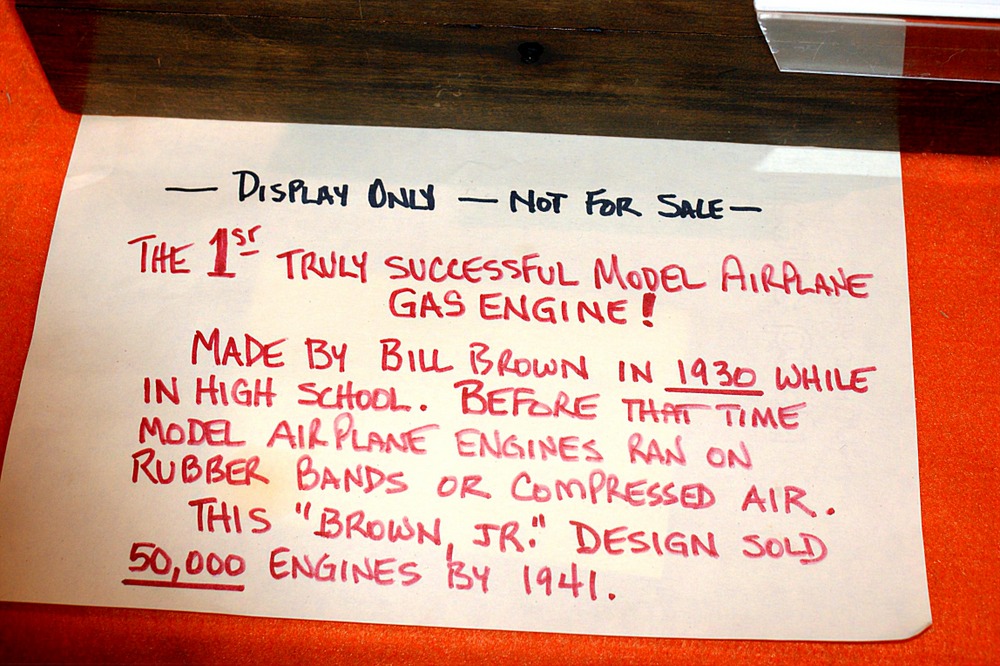 — DISPLAY ONLY — NOT FOR SALE —
THE 1ST TRULY SUCCESSFUL MODEL AIRPLANE
GAS ENGINE!
MADE BY BILL BROWN IN 1930 WHILE
IN HIGH SCHOOL. BEFORE THAT TIME
MODEL AIRPLANE ENGINES RAN ON
RUBBER BANDS OR COMPRESSED AIR.
THIS "BROWN, JR." DESIGN SOLD
50,000 ENGINES BY 1941.